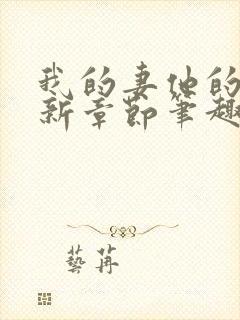 我的妻他的
新章節筆趣
藝苒